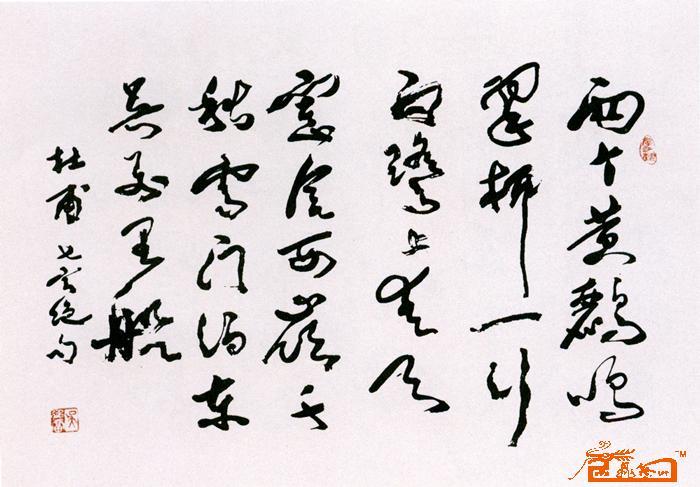 两个黄鸝鸣
翠柳一行
白鹭上青天
窗含西岭千
秋雪门泊东
吴万里船
杜甫七言绝句